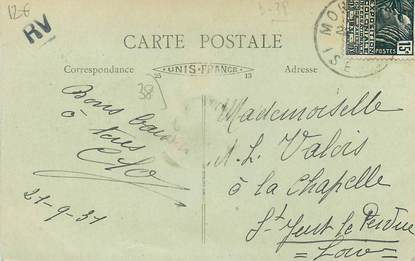 12€
RV
CARTE POSTALE
Correspondance
20 UNIS-FRANCE 13
Adresse
38
Bons baisers
à tous
21-9-31
Mademoiselle
M. L. Valois
à la Chapelle
St Just la Pendue
= Loire =
15c